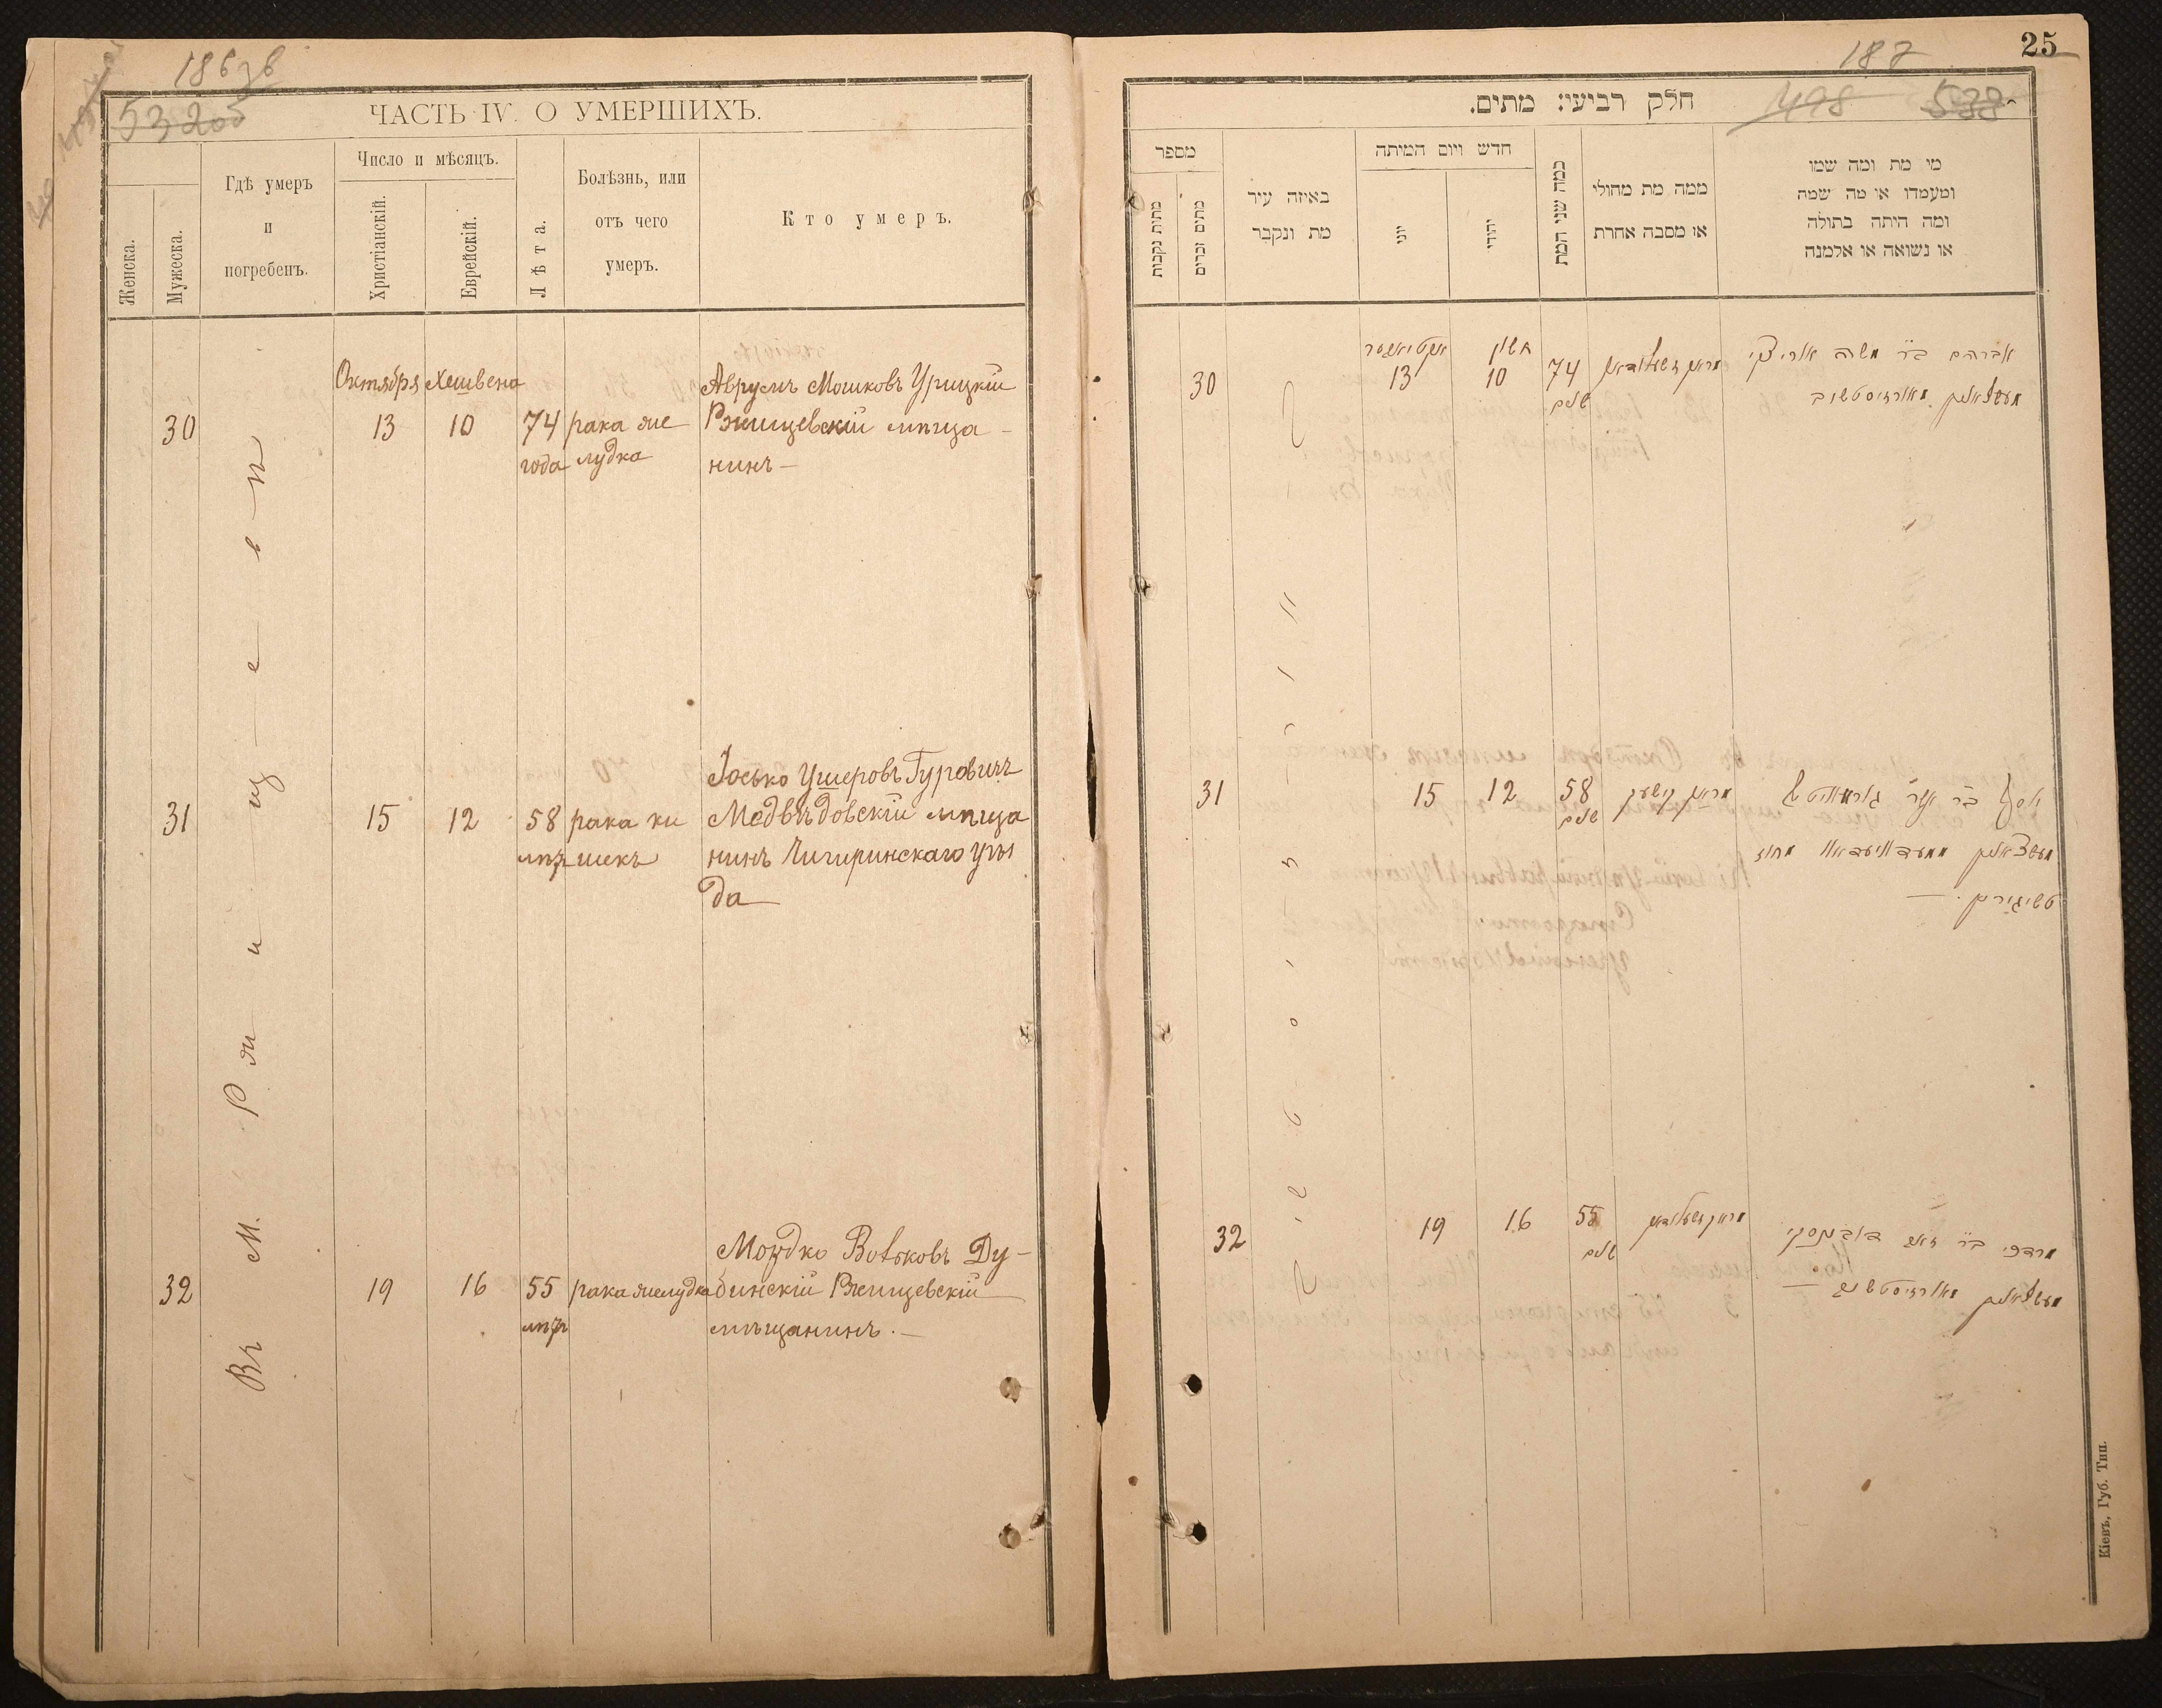 186 зв
532об
ЧАСТЬ IV. О УМЕРШИХЪ.
Женска.
Мужеска.
Гдѣ умеръ
и
погребенъ.
Число и мѣсяцъ.
Христіанскій.
Еврейскій.
Лѣта.
Болѣзнь, или
отъ чего
умеръ.
Кто умеръ.
Въ М. Ржищевѣ
Октября Хешвена
30 13 10 74 года
рака же
лудка
Аврумъ Мошковъ Урицкій
Ржищевскій мѣща
нинъ —
31 15 12 58 лѣтъ
рака ки
шекъ
Іосько Ушеровъ Гуровичъ
Медвѣдовскій мѣща
нинъ Чигиринскаго уѣз
да —
32 19 16 55 лѣтъ
рака желудка
Мордко Вольковъ Ду-
бинскій Ржищевскій
мѣщанинъ. —
25
187
498
538
חלק רביעי: מתים.
מספר
מתות נקבות
מתים זכרים
באיזה עיר
מת ונקבר
חדש ויום המיתה
יוני
יהודי
כמה שני המת
ממה מת מחולי
או מסבה אחרת
מי מת ומה שמו
ומעמדו או מה שמה
ומה היתה בתולה
או נשואה או אלמנה
חשון
30 13 10 74
אברהם ב״ר משה אוריצקי
31 15 12 58
32 19 16 55
Кіевъ, Губ. Тип.